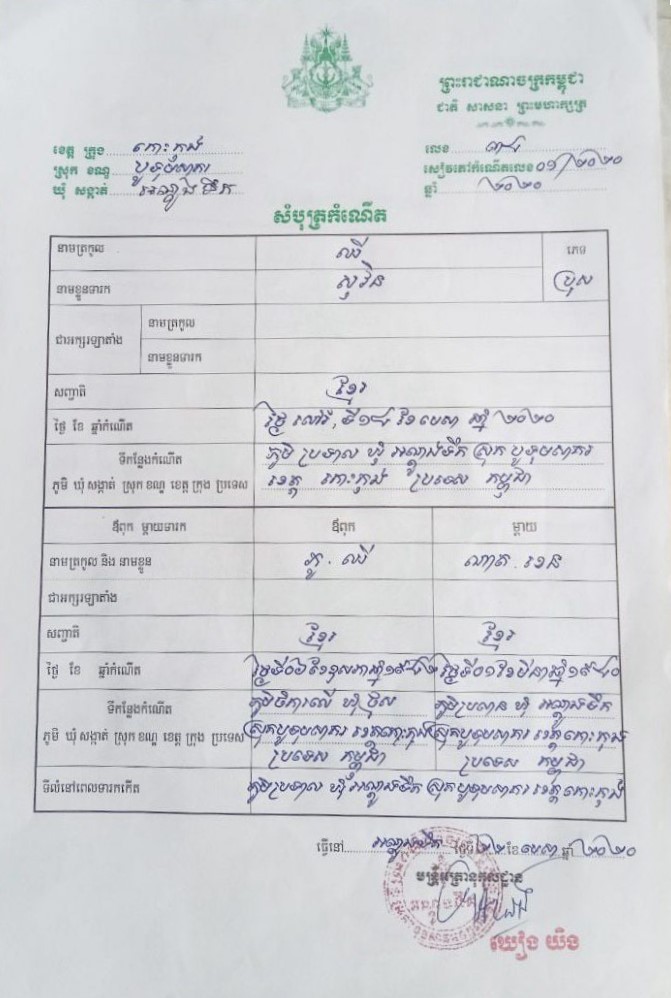 ព្រះរាជាណាចក្រកម្ពុជា
ជាតិ សាសនា ព្រះមហាក្សត្រ
ខេត្ត ក្រុង កោះកុង
ស្រុក ខណ្ឌ បូទុមសាគរ
ឃុំ សង្កាត់ អណ្តូងទឹក
លេខ
សៀវភៅកំណើតលេខ ០១/២០២០
ឆ្នាំ ២០២០
សំបុត្រកំណើត
នាមត្រកូល ឈី
ភេទ
នាមខ្លួនទារក សុវិន
ប្រុស
ជាអក្សរឡាតាំង
នាមត្រកូល
នាមខ្លួនទារក
សញ្ជាតិ ខ្មែរ
ថ្ងៃ ខែ ឆ្នាំកំណើត ថ្ងៃ សៅរ៍, ទី១៨ ខែ មេសា ឆ្នាំ ២០២០
ទីកន្លែងកំណើត
ភូមិ ឃុំ សង្កាត់ ស្រុក ខណ្ឌ ខេត្ត ក្រុង ប្រទេស
ភូមិ ឃុំ អណ្តូងទឹក ស្រុក បូទុមសាគរ
ខេត្ត កោះកុង ប្រទេស កម្ពុជា
ឪពុក ម្តាយទារក ឪពុក ម្តាយ
នាមត្រកូល និង នាមខ្លួន ឈី
ជាអក្សរឡាតាំង
សញ្ជាតិ ខ្មែរ ខ្មែរ
ថ្ងៃ ខែ ឆ្នាំកំណើត ថ្ងៃទី០៦ ខែ ឆ្នាំ ថ្ងៃទី០១ ខែមីនា ឆ្នាំ
ទីកន្លែងកំណើត
ភូមិ ឃុំ សង្កាត់ ស្រុក ខណ្ឌ ខេត្ត ក្រុង ប្រទេស
ភូមិ ឃុំ
ស្រុកបូទុមសាគរ ខេត្តកោះកុង
ប្រទេស កម្ពុជា
ភូមិ ឃុំ អណ្តូងទឹក
ស្រុកបូទុមសាគរ ខេត្តកោះកុង
ប្រទេស កម្ពុជា
ទីលំនៅពេលទារកកើត ភូមិ ឃុំ អណ្តូងទឹក ស្រុកបូទុមសាគរ ខេត្តកោះកុង
ធ្វើនៅ អណ្តូងទឹក ថ្ងៃទី ២២ ខែ មេសា ឆ្នាំ ២០២០
មន្ត្រីអត្រានុកូលដ្ឋាន
អណ្តូងទឹក
ឃៀង យិង